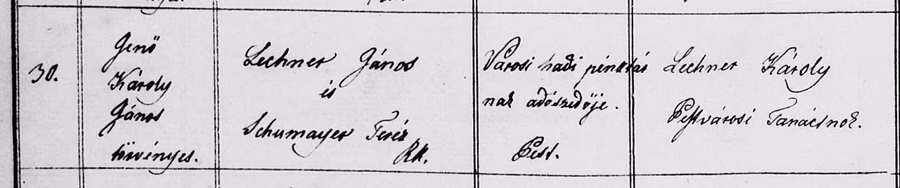 30.
Jenő
Károly
János
törvényes.
Lechner János
és
Schumayer Teréz
RK.
Városi hadi pénztár
nak adószedője.
Pest.
Lechner Károly
Pestvárosi Tanácsnok.